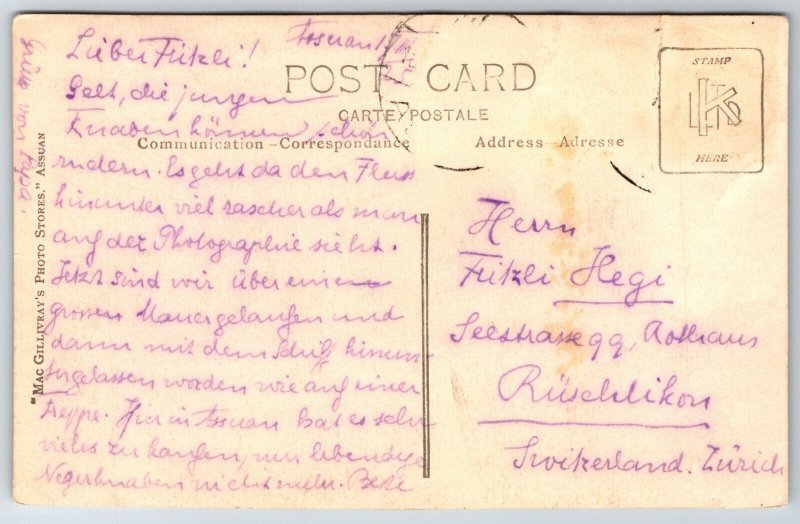 Assuan
Lieber Fritzli!
POST CARD
CARTE POSTALE
Communication – Correspondance
Address – Adresse
STAMP
HERE
Gelt, die jungen
Knaben können schon
rudern. Es geht da den Fluss
hinunter viel rascher als man
auf der Photographie sieht.
Jetzt sind wir über eine
grossen Mauer gelaufen und
dann mit dem Schiff hinun-
tergelassen worden wie auf einer
Treppe. Hier in Assuan hat es sehr
vieles zu kaufen, nur lebendige
Negerknaben nicht mehr. Beste
Grüsse von Papa.
"MAC GILLIVRAY'S PHOTO STORES," ASSUAN
Herrn
Fritzli Hegi
Seestrasse 99, Rothaus
Rüschlikon
Switzerland. Zürich